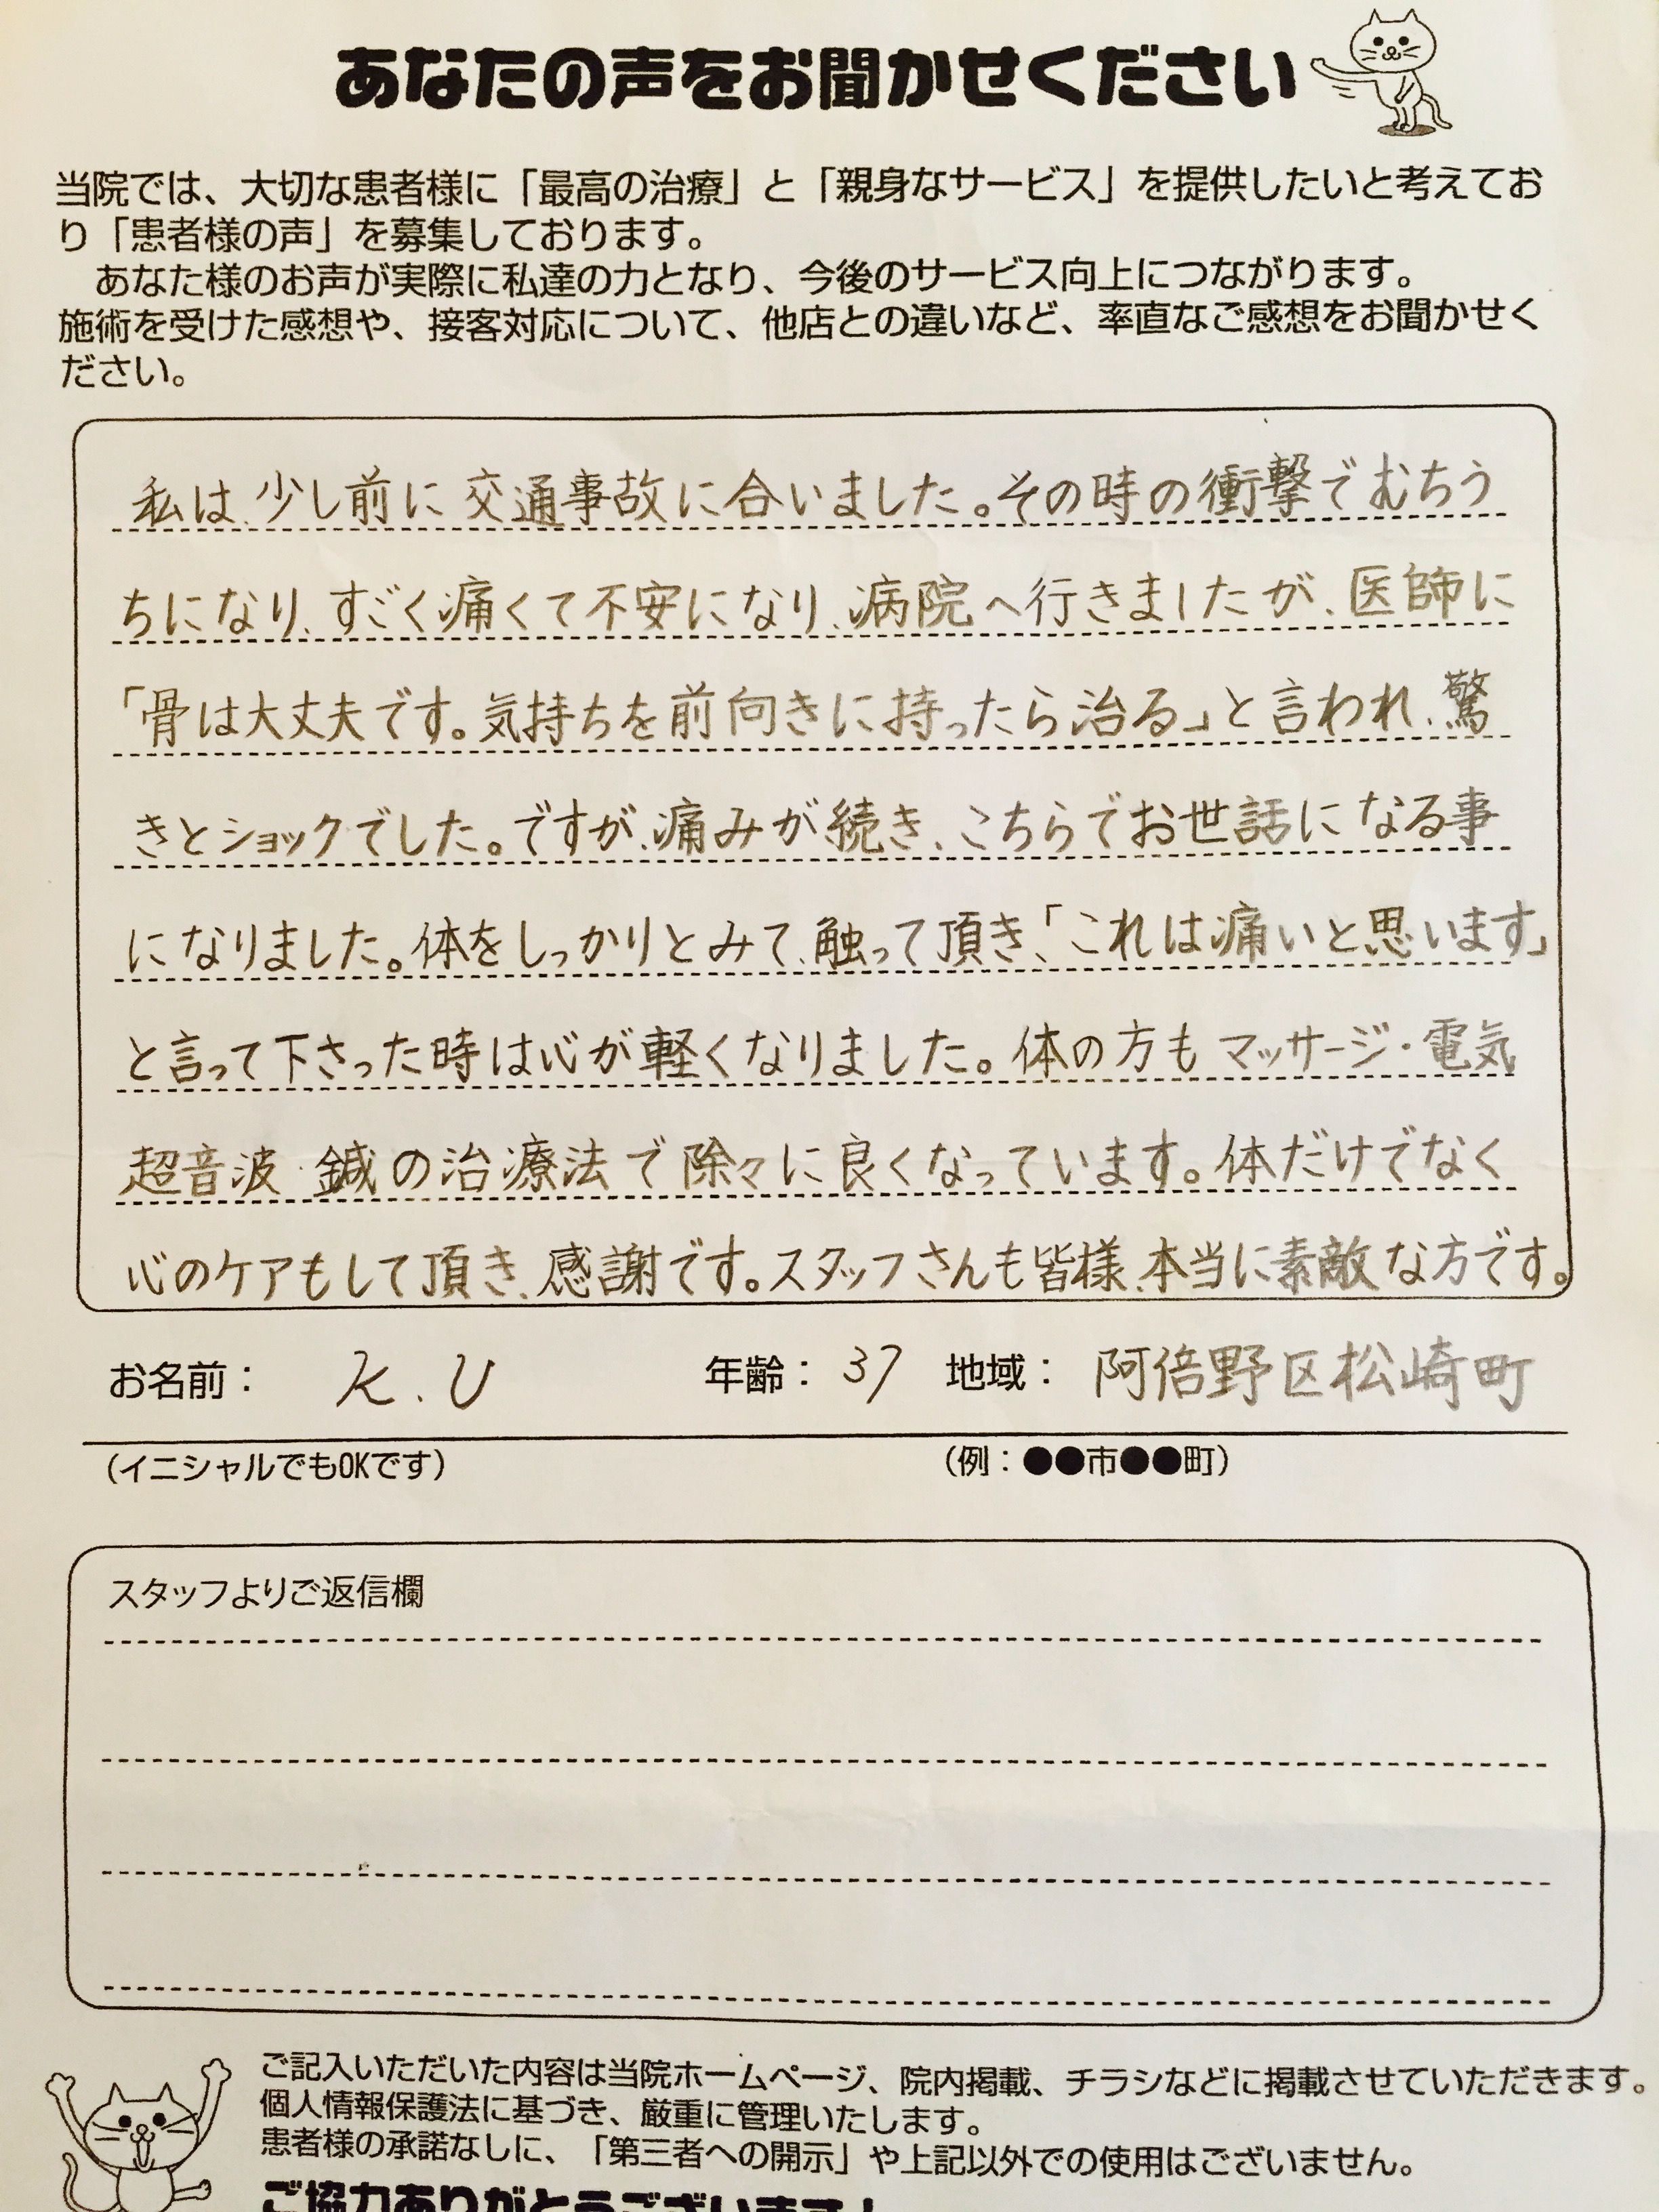 あなたの声をお聞かせください
当院では、大切な患者様に「最高の治療」と「親身なサービス」を提供したいと考えてお
り「患者様の声」を募集しております。
あなた様のお声が実際に私達の力となり、今後のサービス向上につながります。
施術を受けた感想や、接客対応について、他店との違いなど、率直なご感想をお聞かせく
ださい。
私は、少し前に交通事故に合いました。その時の衝撃でむちう
ちになり、すごく痛くて不安になり、病院へ行きましたが、医師に
「骨は大丈夫です。気持ちを前向きに持ったら治る」と言われ、驚
きとショックでした。ですが、痛みが続き、こちらでお世話になる事
になりました。体をしっかりとみて、触って頂き、「これは痛いと思います」
と言って下さった時は心が軽くなりました。体の方もマッサージ・電気
超音波・鍼の治療法で除々に良くなっています。体だけでなく
心のケアもして頂き、感謝です。スタッフさんも皆様、本当に素敵な方です。
お名前： K.U 年齢： 37 地域： 阿倍野区松崎町
（イニシャルでもOKです） （例：●●市●●町）
スタッフよりご返信欄
ご記入いただいた内容は当院ホームページ、院内掲載、チラシなどに掲載させていただきます。
個人情報保護法に基づき、厳重に管理いたします。
患者様の承諾なしに、「第三者への開示」や上記以外での使用はございません。
ご協力ありがとうございます！